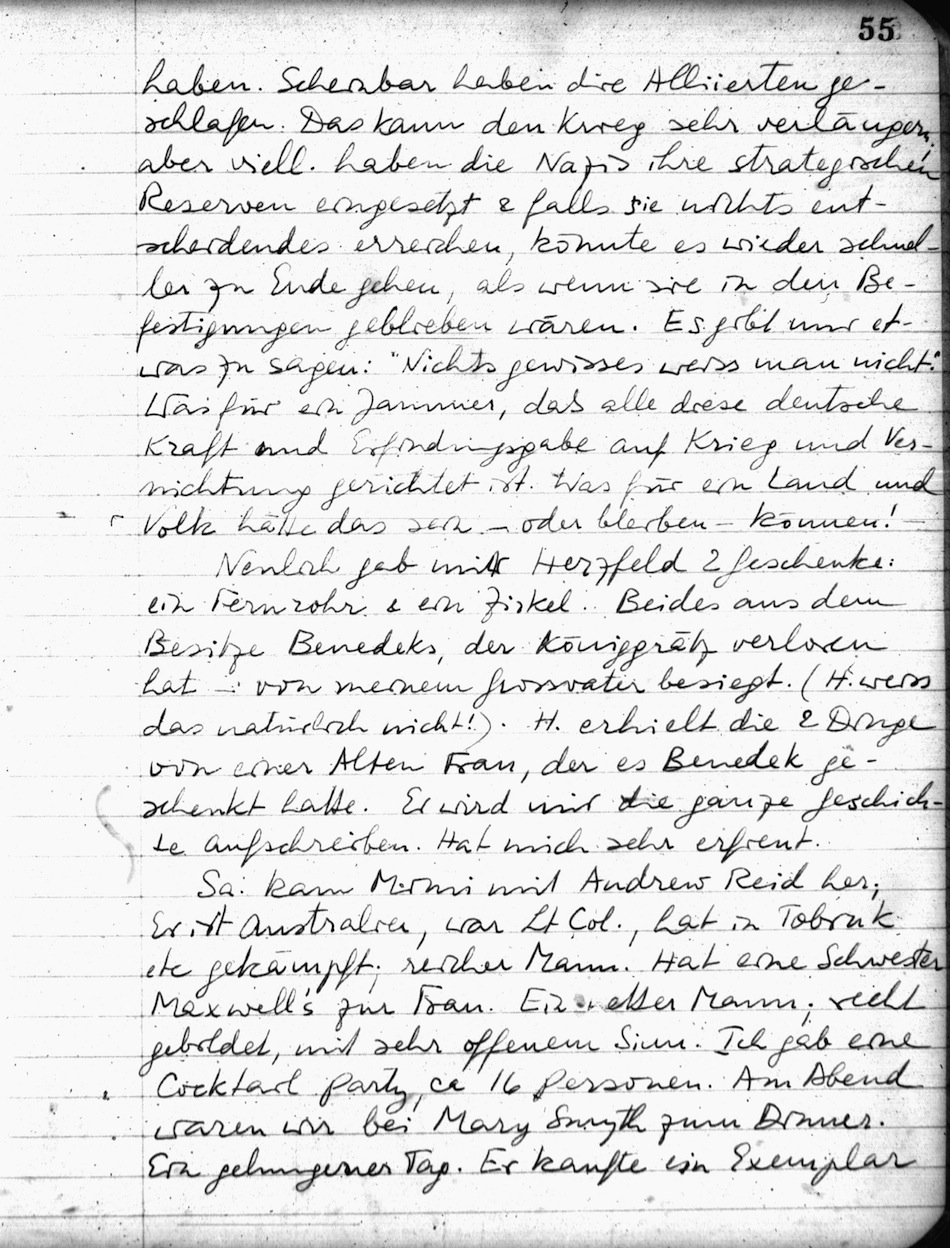 55
haben. Scheinbar haben die Alliierten ge-
schlafen. Das kann den Krieg sehr verlängern,
aber viell. haben die Nazis ihre strategischen
Reserven eingesetzt & falls sie nichts ent-
scheidendes erreichen, könnte es wieder schnel-
ler zu Ende gehen, als wenn sie in den Be-
festigungen geblieben wären. Es gibt nur et-
was zu sagen: "Nichts gewisses weiss man nicht".
Was für ein Jammer, daß alle diese deutsche
Kraft und Erfindungsgabe auf Krieg und Ver-
nichtung gerichtet ist. Was für ein Land und
Volk hätte das sein – oder bleiben – können! –
Neulich gab mir Herzfeld 2 Geschenke:
ein Fernrohr & ein Zirkel. Beides aus dem
Besitze Benedeks, der Königgrätz verloren
hat – von meinem Grossvater besiegt. (H. weiss
das natürlich nicht!). H. erhielt die 2 Dinge
von einer Alten Frau, der es Benedek ge-
schenkt hatte. Er wird mir die ganze Geschich-
te aufschreiben. Hat mich sehr erfreut.
Sa. kam Mimi mit Andrew Reid her;
Er ist Australier, war Lt Col., hat in Tobruk
etc gekämpft; reicher Mann. Hat eine Schwester
Maxwell's zur Frau. Ein netter Mann; recht
gebildet, mit sehr offenem Sinn. Ich gab eine
Cocktail party, ca 16 Personen. Am Abend
waren wir bei Mary Smyth zum Dinner.
Ein gelungener Tag. Er kaufte ein Exemplar